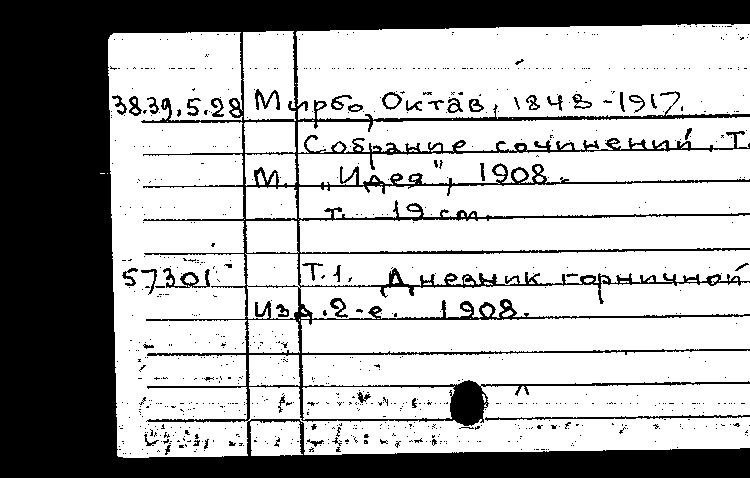 38.39.5.28 Мирбо, Октав, 1848-1917.
Собрание сочинений. Т.
М. "Идея", 1908.
т. 19 см.
57301 Т.1. Дневник горничной
Изд.2-е. 1908.